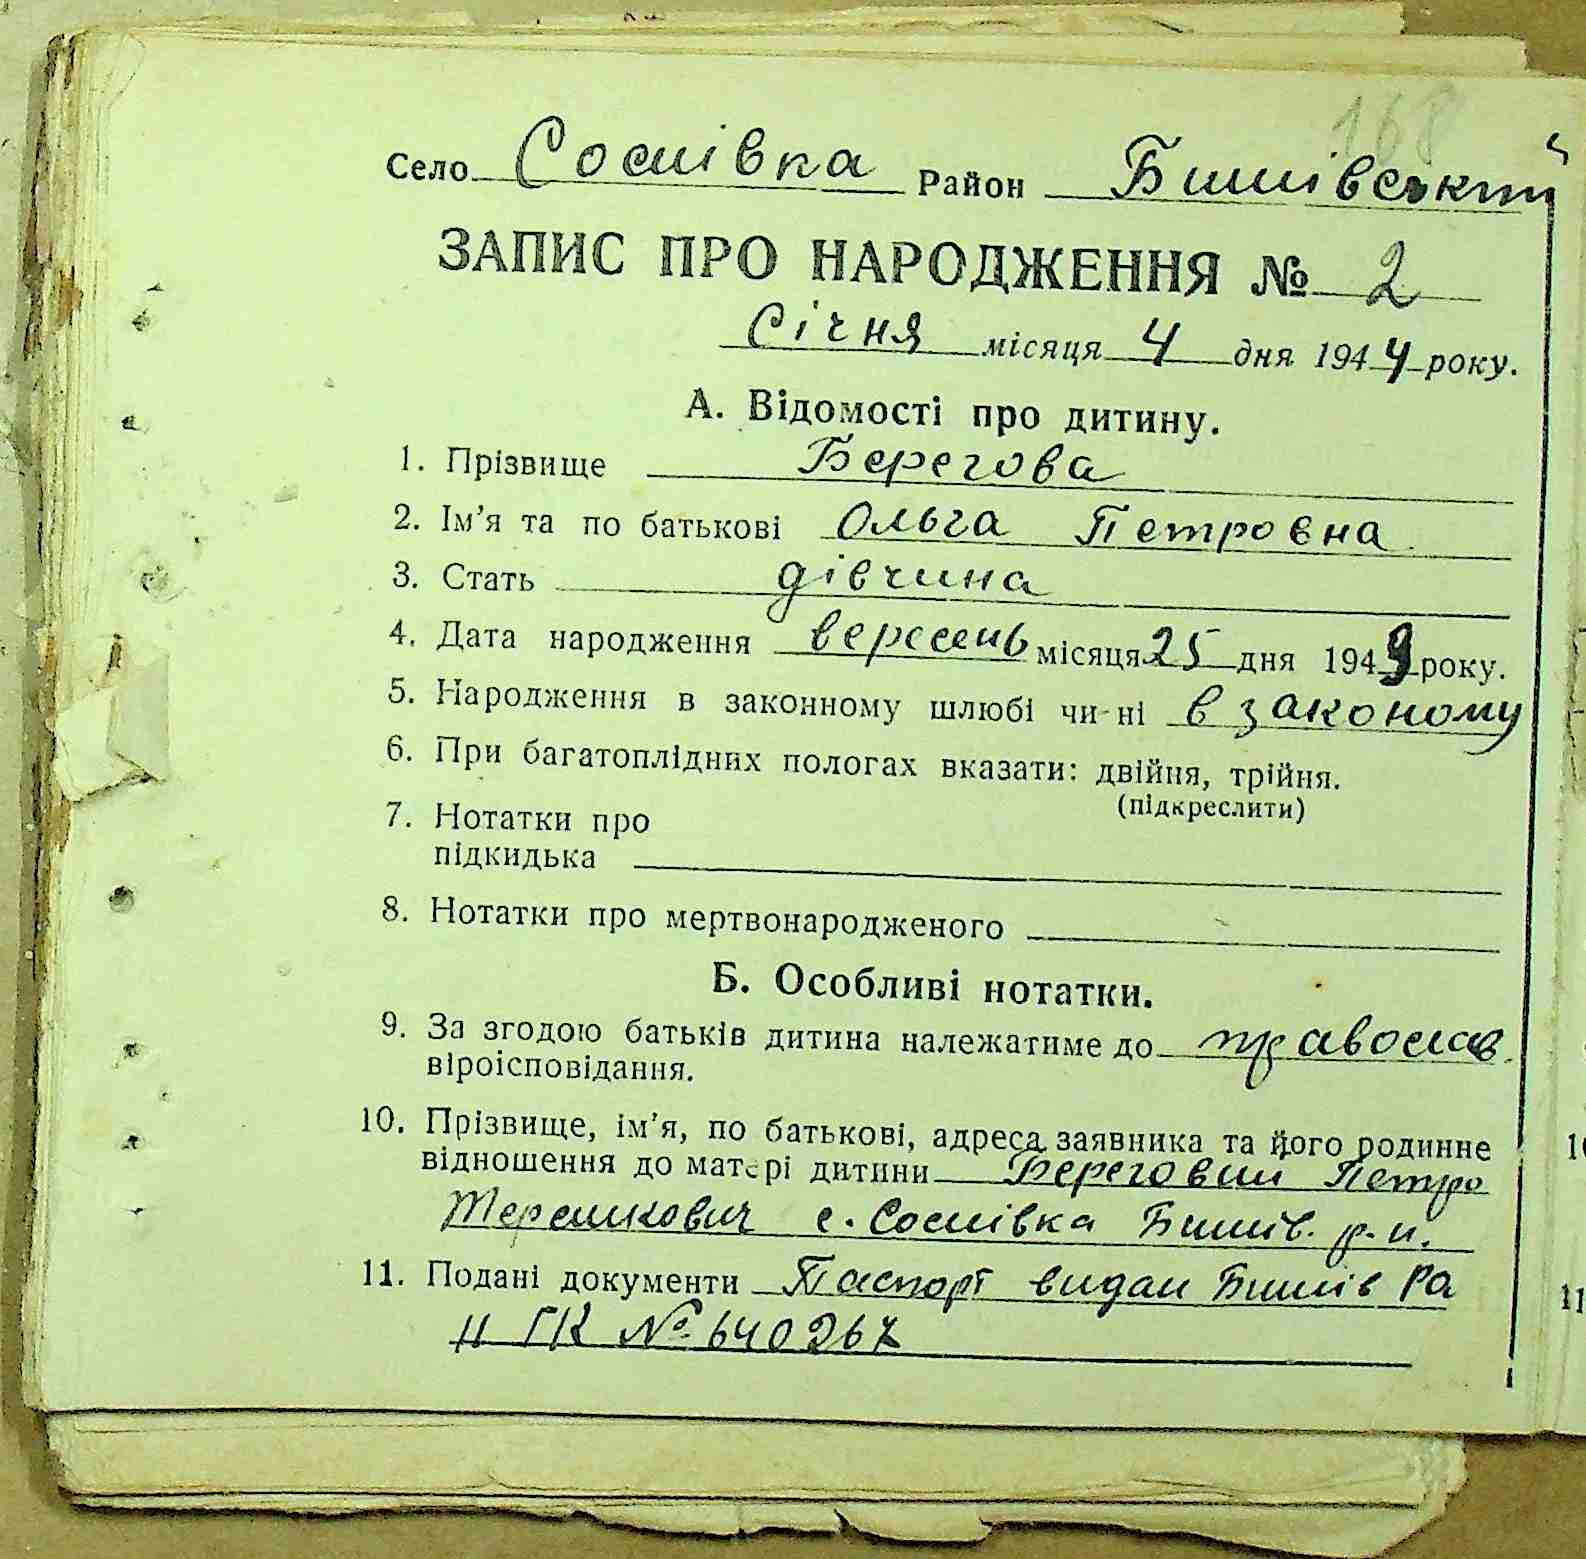 168
Село Соснівка Район Бишівський
ЗАПИС ПРО НАРОДЖЕННЯ № 2
Січня місяця 4 дня 1944 року.
А. Відомості про дитину.
1. Прізвище Берегова
2. Ім'я та по батькові Ольга Петровна
3. Стать дівчина
4. Дата народження вересень місяця 25 дня 1949 року.
5. Народження в законному шлюбі чи ні в законому
6. При багатоплідних пологах вказати: двійня, трійня.
(підкреслити)
7. Нотатки про
підкидька
8. Нотатки про мертвонародженого
Б. Особливі нотатки.
9. За згодою батьків дитина належатиме до православ.
віроісповідання.
10. Прізвище, ім'я, по батькові, адреса заявника та його родинне
відношення до матері дитини Береговий Петро
с. Соснівка Бишів. р-н.
11. Подані документи Паспорт видан Бишів Ра
н ГК № 640267
10
11